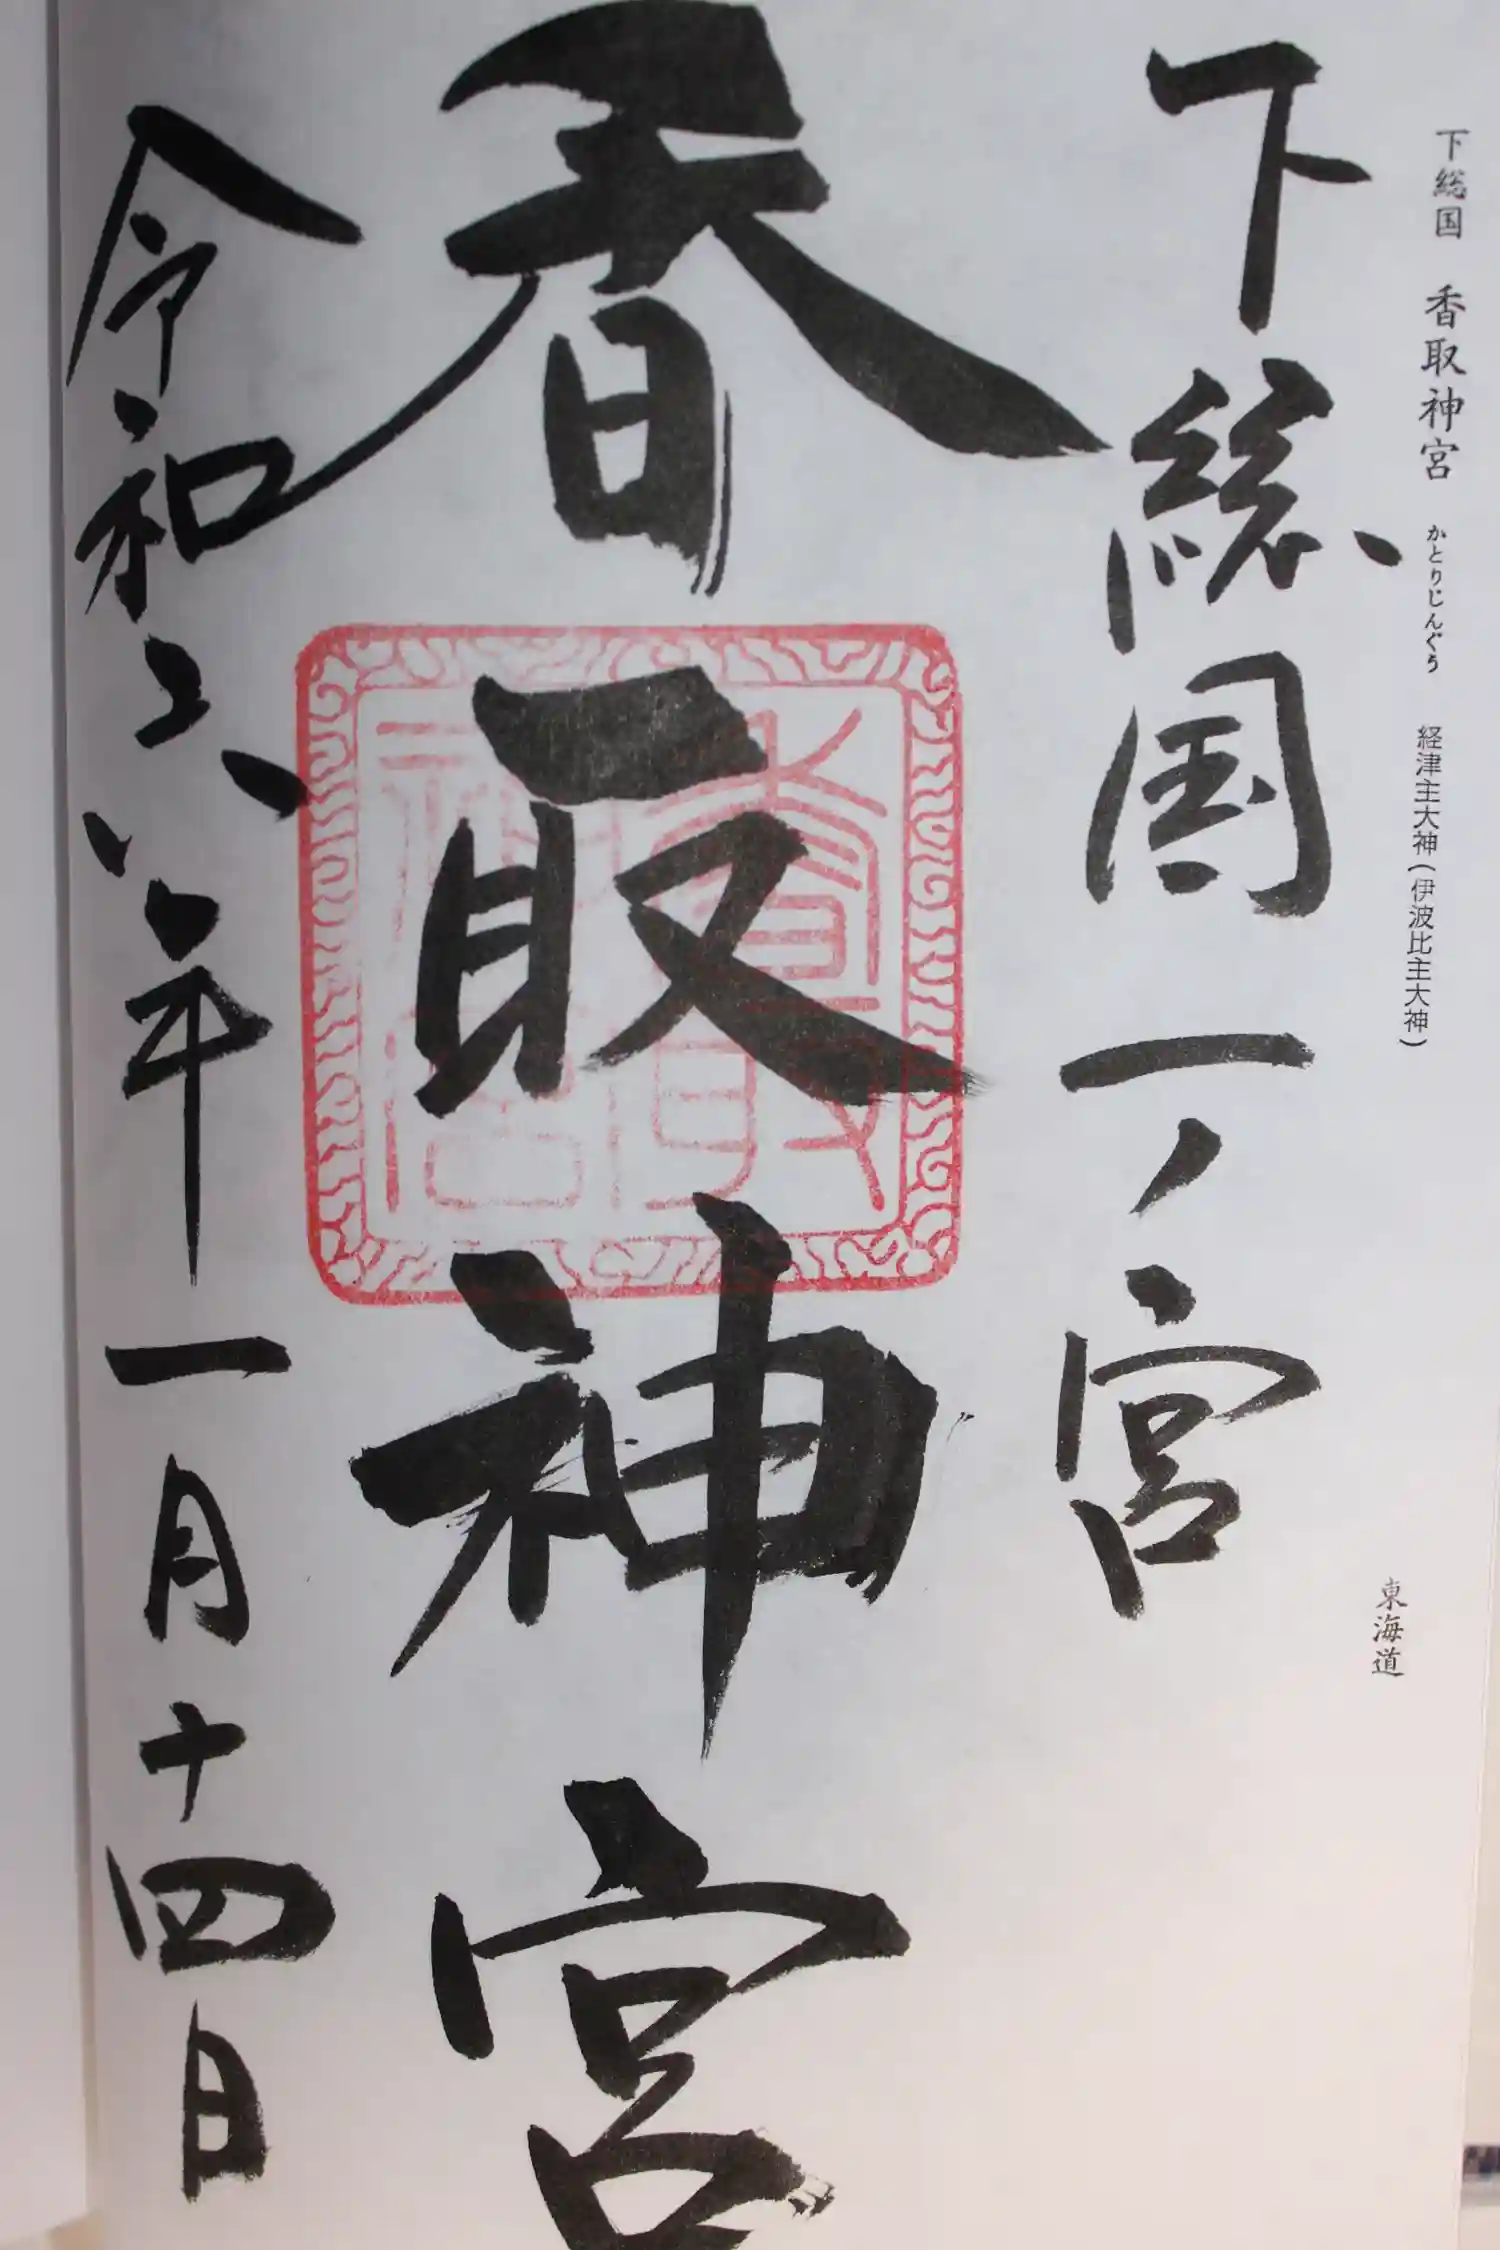 下総国 香取神宮 かとりじんぐう 経津主大神(伊波比主大神)
東海道
下総国一ノ宮
香取神宮
香取神宮
令和六年一月十四日